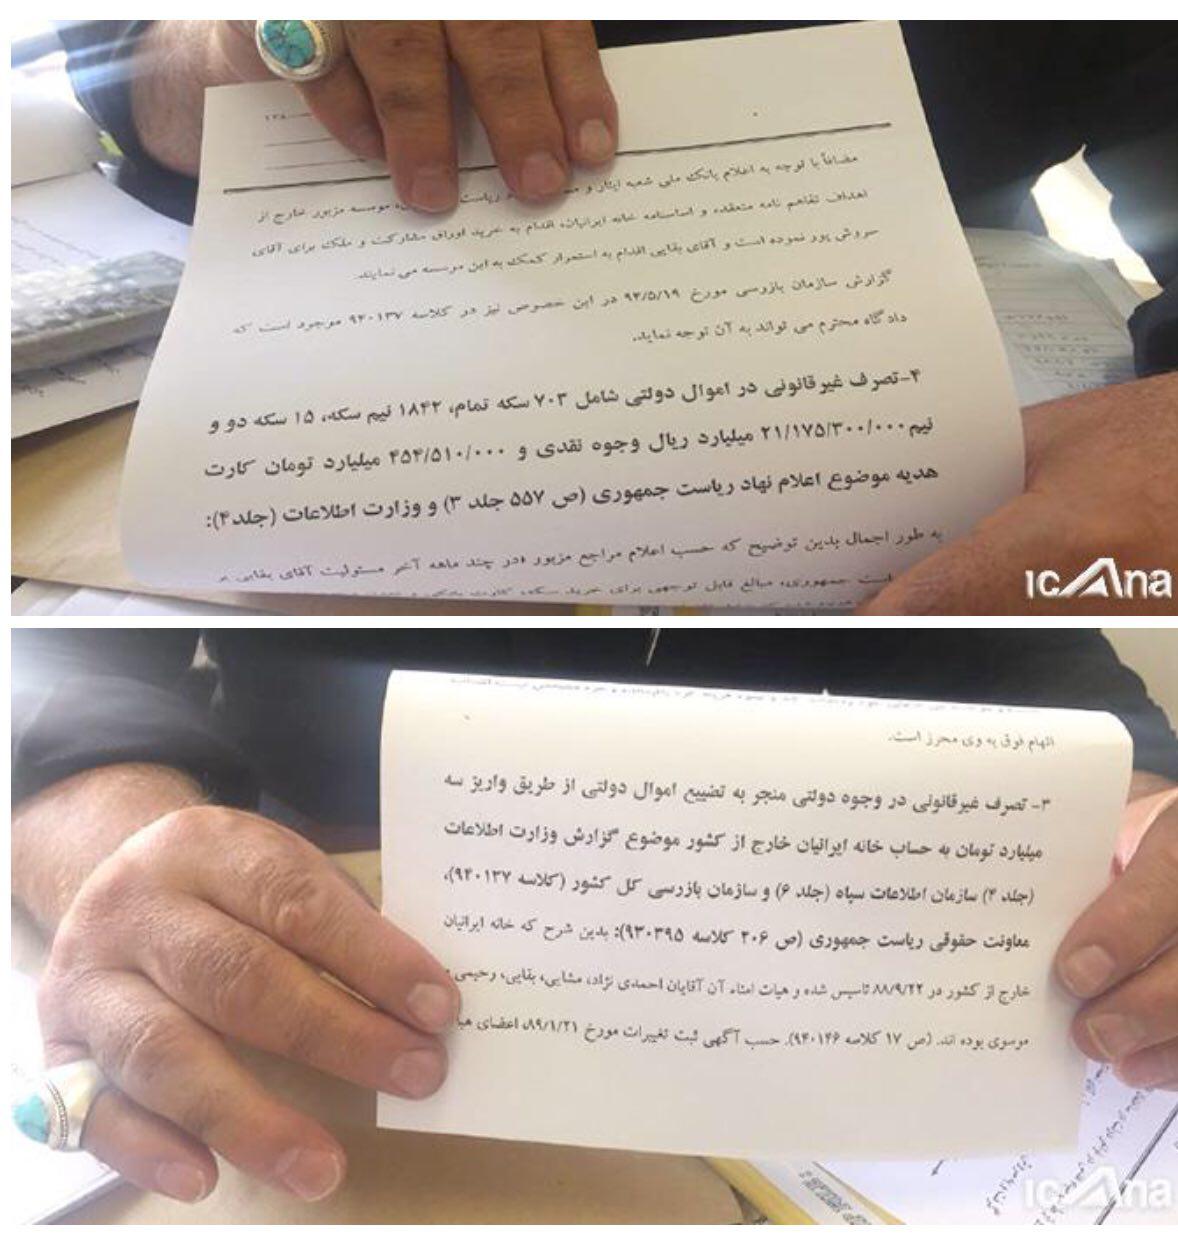 ۱۳۸
مضافاً با توجه به اعلام بانک ملی شعبه ایثار و ریاست موسسه مزبور خارج از
اهداف تفاهم نامه منعقده و اساسنامه خانه ایرانیان، اقدام به خرید اوراق مشارکت و ملک برای آقای
سروش پور نموده است و آقای بقایی اقدام به استمرار کمک به این موسسه می نمایند.
گزارش سازمان بازرسی مورخ ۹۲/۵/۱۹ در این خصوص نیز در کلاسه ۹۴۰۱۳۷ موجود است که
دادگاه محترم می تواند به آن توجه نماید.
۴-تصرف غیرقانونی در اموال دولتی شامل ۷۰۳ سکه تمام، ۱۸۴۲ نیم سکه، ۱۵ سکه دو و
نیم ۲۱/۱۷۵/۳۰۰/۰۰۰ میلیارد ریال وجوه نقدی و ۴۵۴/۵۱۰/۰۰۰ میلیارد تومان کارت
هدیه موضوع اعلام نهاد ریاست جمهوری (ص ۵۵۷ جلد ۳) و وزارت اطلاعات (جلد۴):
به طور اجمال بدین توضیح که حسب اعلام مراجع مزبور «در چند ماهه آخر مسئولیت آقای بقایی بر
است جمهوری، مبالغ قابل توجهی برای خرید سکه، کارت
icana
اتهام فوق به وی محرز است.
۳- تصرف غیرقانونی در وجوه دولتی منجر به تضییع اموال دولتی از طریق واریز سه
میلیارد تومان به حساب خانه ایرانیان خارج از کشور موضوع گزارش وزارت اطلاعات
(جلد ۴) سازمان اطلاعات سپاه (جلد ۶) و سازمان بازرسی کل کشور (کلاسه ۹۴۰۱۳۷)،
معاونت حقوقی ریاست جمهوری (ص ۲۰۶ کلاسه ۹۳۰۳۹۵): بدین شرح که خانه ایرانیان
خارج از کشور در ۸۸/۹/۲۲ تاسیس شده و هیات امناء آن آقایان احمدی نژاد، مشایی، بقایی، رحیمی
موسوی بوده اند. (ص ۱۷ کلاسه ۹۴۰۱۴۶). حسب آگهی ثبت تغییرات مورخ ۸۹/۱/۲۱، اعضای
icana